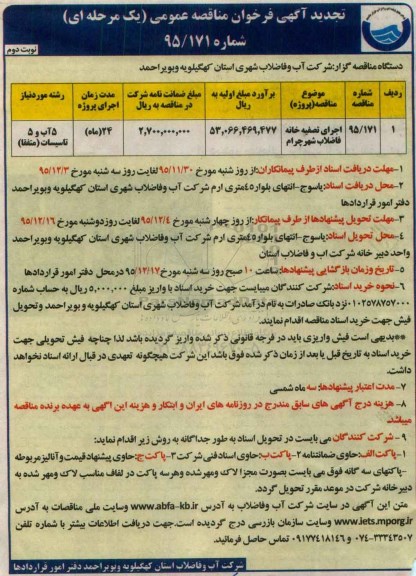 تجدید آگهی فرخوان مناقصه عمومی (یک مرحله ای)
شماره ۹۵/۱۷۱
نوبت دوم
دستگاه مناقصه گزار: شرکت آب وفاضلاب شهری استان کهگیلویه وبویراحمد
ردیف
شماره مناقصه
موضوع مناقصه(پروژه)
برآورد مبلغ اولیه به ریال
مبلغ ضمانت نامه شرکت در مناقصه به ریال
مدت زمان اجرای پروژه
رشته موردنیاز
۱
۹۵/۱۷۱
اجرای تصفیه خانه فاضلاب شهرچرام
۵۳,۰۶۶,۴۶۹,۴۷۷
۲,۷۰۰,۰۰۰,۰۰۰
۲۴(ماه)
۵آب و ۵ تاسیسات (متفقا)
۱-مهلت دریافت اسناد ازطرف پیمانکاران:از روز شنبه مورخ ۹۵/۱۱/۳۰ لغایت روز سه شنبه مورخ ۹۵/۱۲/۳
۲-محل دریافت اسناد:یاسوج-انتهای بلوار۴۵متری ارم شرکت آب وفاضلاب شهری استان کهگیلویه وبویراحمد
دفتر امور قراردادها
۳-مهلت تحویل پیشنهادها از طرف پیمانکار:از روز چهار شنبه مورخ ۹۵/۱۲/۴ لغایت روزدوشنبه مورخ ۹۵/۱۲/۱۶
۴-محل تحویل اسناد:یاسوج-انتهای بلوار۴۵متری ارم شرکت آب وفاضلاب شهری استان کهگیلویه وبویراحمد
واحد دبیر خانه شرکت اب و فاضلاب استان
۵-تاریخ وزمان بازگشایی پیشنهادها: ساعت ۱۰ صبح روز سه شنبه مورخ ۹۵/۱۲/۱۷ درمحل دفتر امور قراردادها
۶-نحوه خرید اسناد:شرکت کنندگان میبایست جهت خرید اسناد با واریز مبلغ ۵,۰۰۰,۰۰۰ ریال به حساب شماره
۰۱۰۲۵۷۸۷۵۷۰۰۰ نزد بانک صادرات به نام درآمد شرکت آب وفاضلاب شهری استان کهگیلویه وبویراحمد وتحویل
فیش جهت خرید اسناد مناقصه اقدام نمایند.
**بدیهی است فیش واریزی باید در فرجه قانونی ذکر شده واریز گردیده باشد لذا چناچه فیش تحویلی جهت
خرید اسناد به تاریخ قبل یا بعد از زمان ذکر شده فوق باشد این شرکت هیچگونه تعهدی در قبال ارائه اسناد نخواهد
داشت.
۷-مدت اعتبار پیشنهادها: سه ماه شمسی
۸-هزینه درج آگهی های سابق مندرج در روزنامه های ایران و ابتکار و هزینه این آگهی به عهده برنده مناقصه
میباشد.
۹-شرکت کنندگان می بایست در تحویل اسناد به طور جداگانه به روش زیر اقدام نماید:
۱-پاکت الف:حاوی ضمانتنامه ۲-پاکت ب:حاوی اسناد فنی شرکت ۳-پاکت ج:حاوی پیشنهاد قیمت وآنالیزمربوطه
-پاکتهای سه گانه فوق می بایست بصورت مجزا لاک ومهرشده وهرسه پاکت در لفاف مناسب لاک ومهر شده به
دبیرخانه شرکت در موعد مقرر تحویل گردد.
متن این آگهی در سایت شرکت آب وفاضلاب به آدرس www.abfa-kb.ir وسایت ملی مناقصات به آدرس
www.iets.mporg.ir وسایت سازمان بازرسی درج گردیده است.جهت دریافت اطلاعات بیشتر با شماره تلفن
۰۷۴-۳۳۳۴۳۵۰۷ و ۰۹۱۷۷۴۱۸۱۴۶ تماس حاصل فرمائید.
شرکت آب وفاضلاب استان کهگیلویه وبویراحمد دفتر امور قراردادها